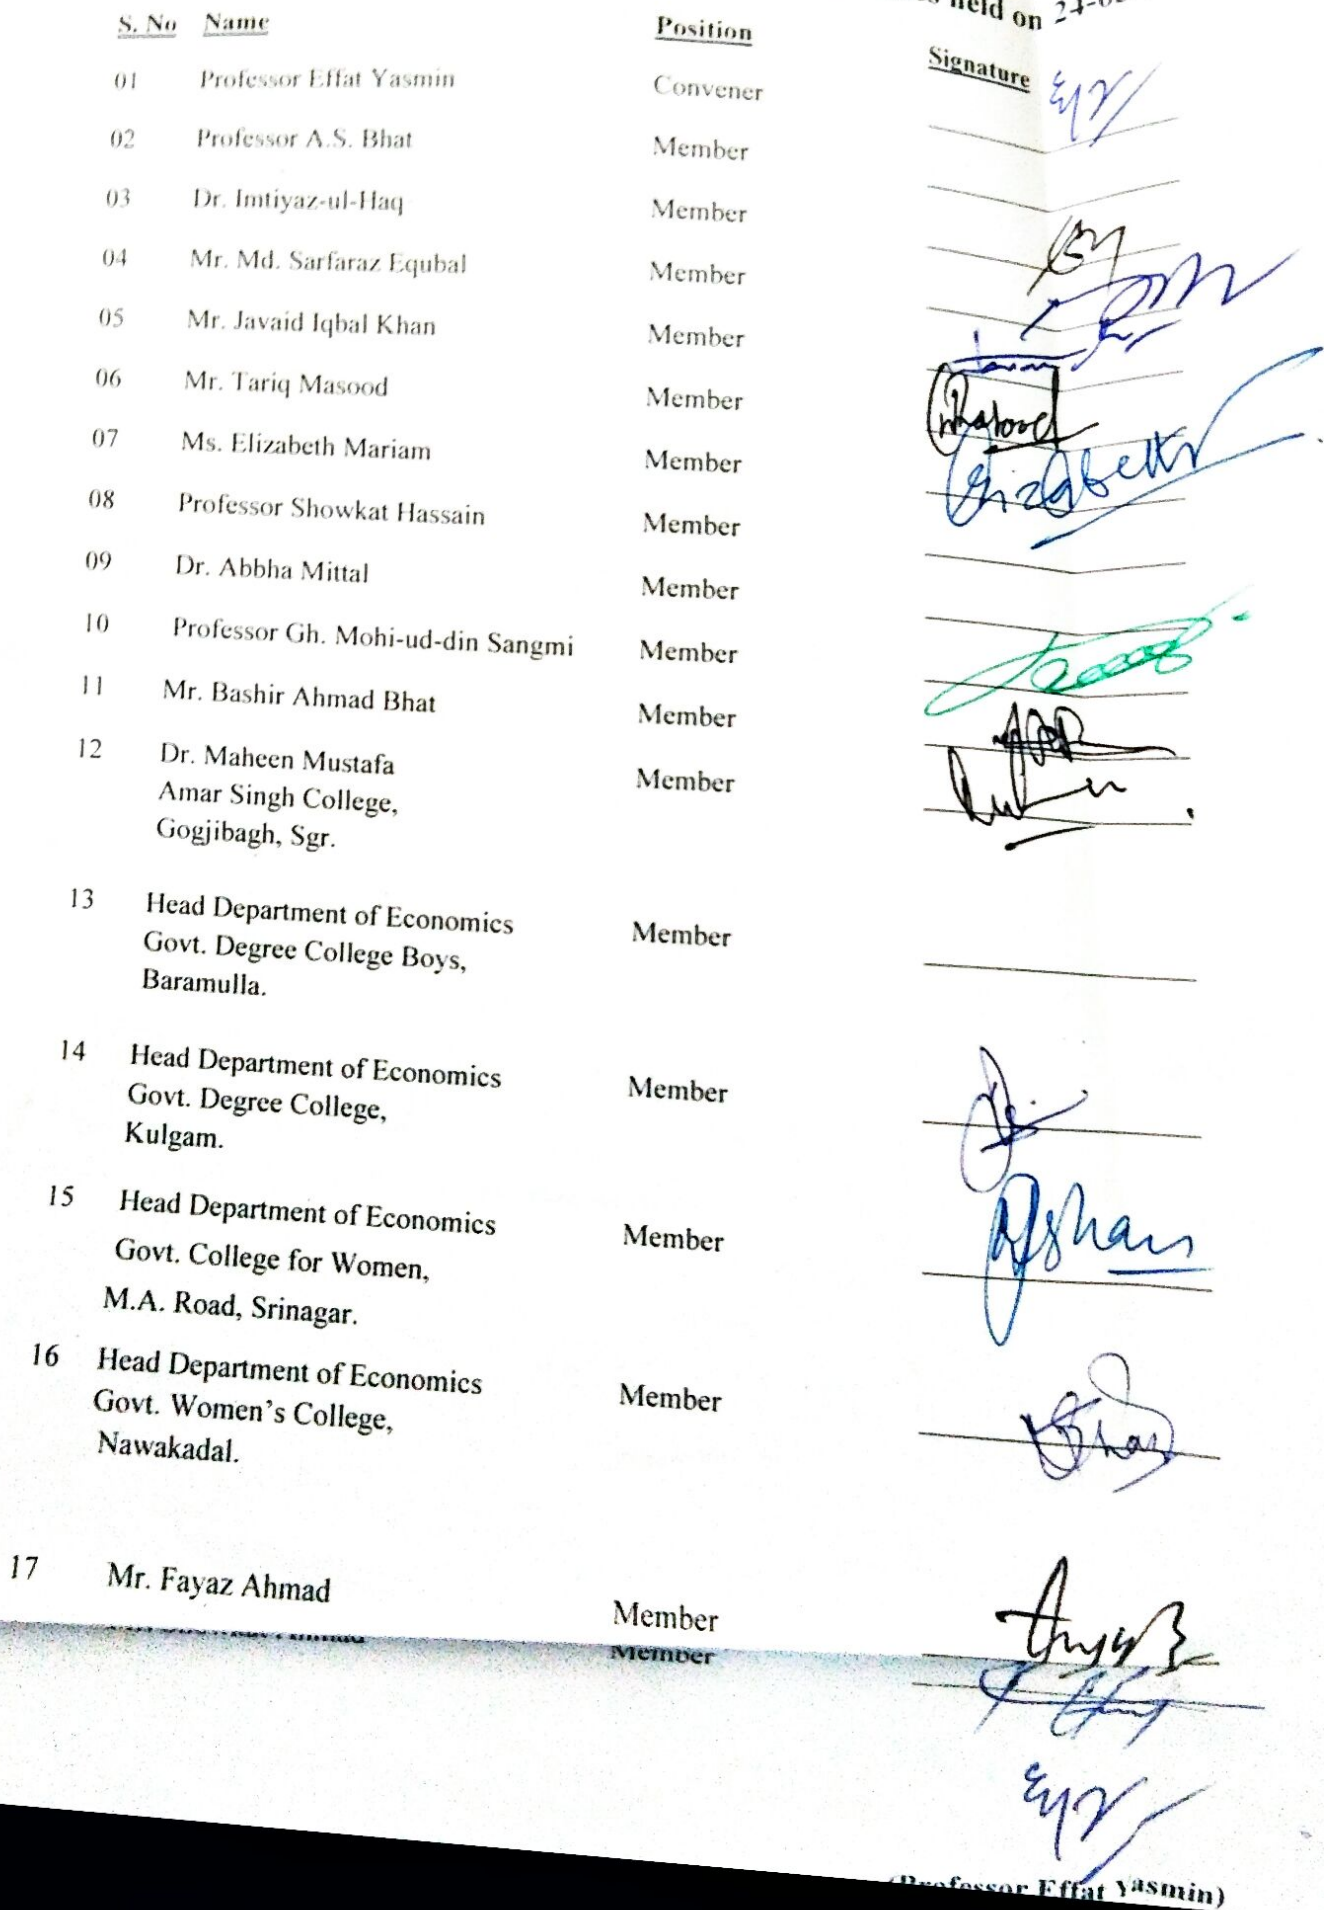 held on 24-0
S. No Name Position Signature
01 Professor Effat Yasmin Convener
02 Professor A.S. Bhat Member
03 Dr. Imtiyaz-ul-Haq Member
04 Mr. Md. Sarfaraz Equbal Member
05 Mr. Javaid Iqbal Khan Member
06 Mr. Tariq Masood Member Masood
07 Ms. Elizabeth Mariam Member Elizabeth
08 Professor Showkat Hassain Member
09 Dr. Abbha Mittal Member
10 Professor Gh. Mohi-ud-din Sangmi Member
11 Mr. Bashir Ahmad Bhat Member
12 Dr. Maheen Mustafa Member
Amar Singh College,
Gogjibagh, Sgr.
13 Head Department of Economics Member
Govt. Degree College Boys,
Baramulla.
14 Head Department of Economics Member
Govt. Degree College,
Kulgam.
15 Head Department of Economics Member Afshan
Govt. College for Women,
M.A. Road, Srinagar.
16 Head Department of Economics Member
Govt. Women's College,
Nawakadal.
17 Mr. Fayaz Ahmad Member
Ahmad Member
(Professor Effat Yasmin)